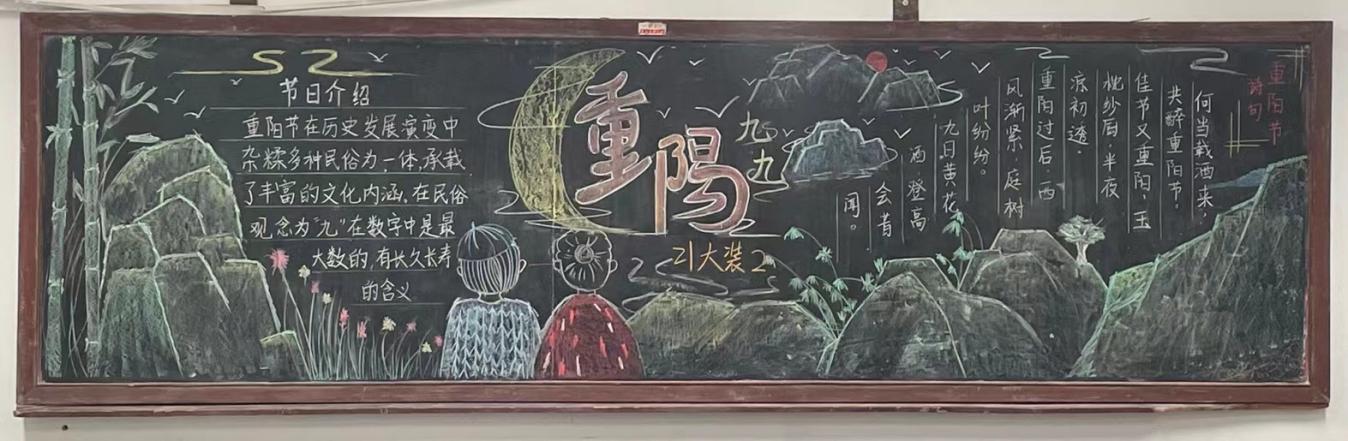 节日介绍
重阳节在历史发展演变中
杂糅多种民俗为一体,承载
了丰富的文化内涵,在民俗
观念为“九”在数字中是最
大数的,有长久长寿
的含义
重阳
九九
21大装2
重阳节
诗句
何当载酒来，
共醉重阳节。
佳节又重阳,玉
枕纱厨,半夜
凉初透。
重阳过后,西
风渐紧,庭树
叶纷纷。
九日黄花
酒,登高
会昔
闻。